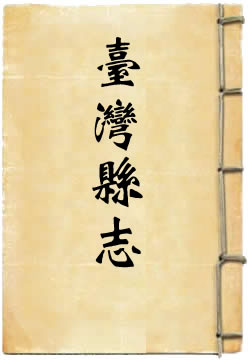 臺灣縣志